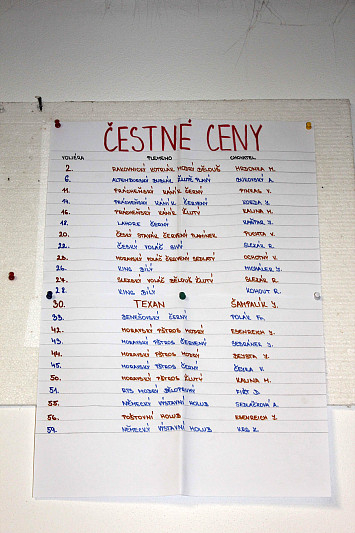 ČESTNÉ CENY
VOLIÉRA PLEMENO CHOVATEL
2. RAKOVNICKÝ KOTRLÁK MODRÝ BĚLOUŠ M.
6. ALTENBURSKÝ BUBLÁK ŽLUTĚ PLAVÝ A.
11. PRÁCHEŇSKÝ KÁNÍK ČERNÝ V.
14. PRÁCHEŇSKÝ KÁNÍK ČERVENÝ J.
16. PRÁCHEŇSKÝ KÁNÍK ŽLUTÝ KALINA M.
18. LAHORE ČERNÝ J.
20. ČESKÝ STAVÁK ČERVENÝ PLAMÍNEK V.
22. ČESKÝ VOLÁČ SIVÝ SLEZÁK R.
23. MORAVSKÝ VOLÁČ ČERVENÝ SEDLATÝ OCHOTNÝ V.
26. KING BÍLÝ J.
27. SLEZSKÝ VOLÁČ BĚLOUŠ ŽLUTÝ SLEZÁK R.
28. KING BÍLÝ KOHOUT R.
30. TEXAN ŠAMPALÍK J.
33. BENEŠOVSKÝ ČERNÝ POLÁK Fr.
42. MORAVSKÝ PŠTROS MODRÝ ESENREICH J.
43. MORAVSKÝ PŠTROS ČERVENÝ J.
44. MORAVSKÝ PŠTROS MODRÝ J.
45. MORAVSKÝ PŠTROS ČERNÝ V.
50. MORAVSKÝ PŠTROS ŽLUTÝ KALINA M.
51. RYS MODRÝ BĚLOPRUHÝ
55. NĚMECKÝ VÝSTAVNÍ HOLUB SEDLÁČKOVÁ A.
56. POŠTOVNÍ HOLUB ESENREICH J.
59. NĚMECKÝ VÝSTAVNÍ HOLUB K.